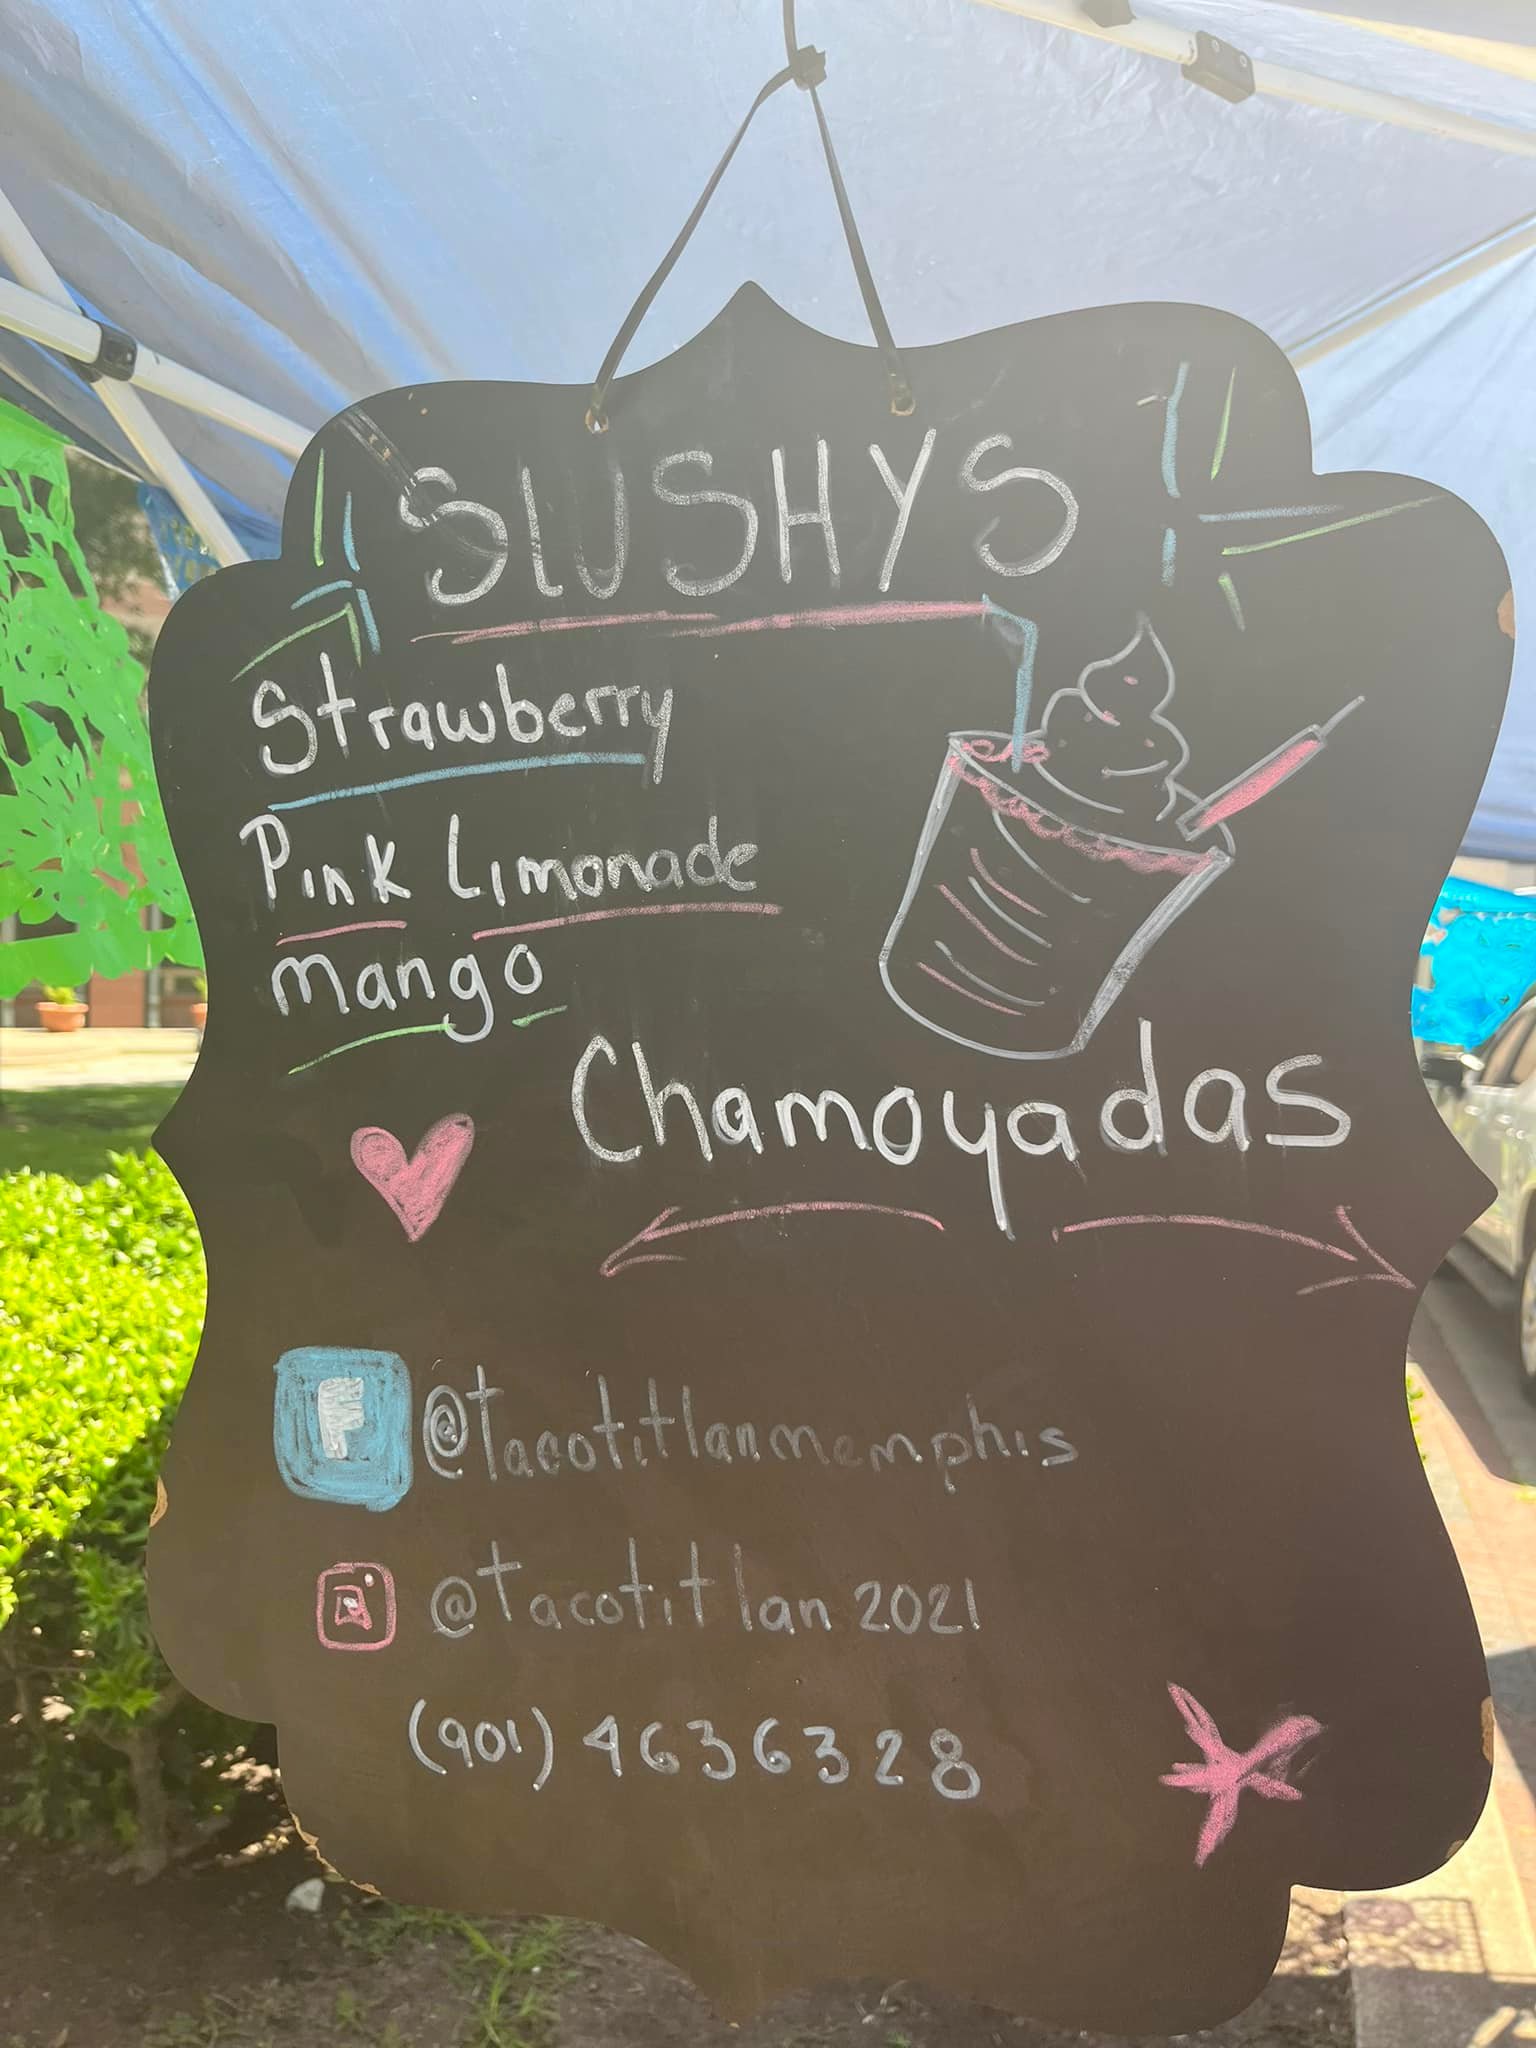 SlUSHYS
Strawberry
Pink Limonade
mango
Chamoyadas
F @tacotitlanmemphis
@tacotitlan 2021
(901) 4636328